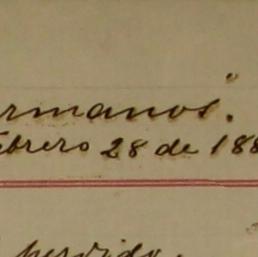 ermanos".
febrero 28 de 188
perdido.